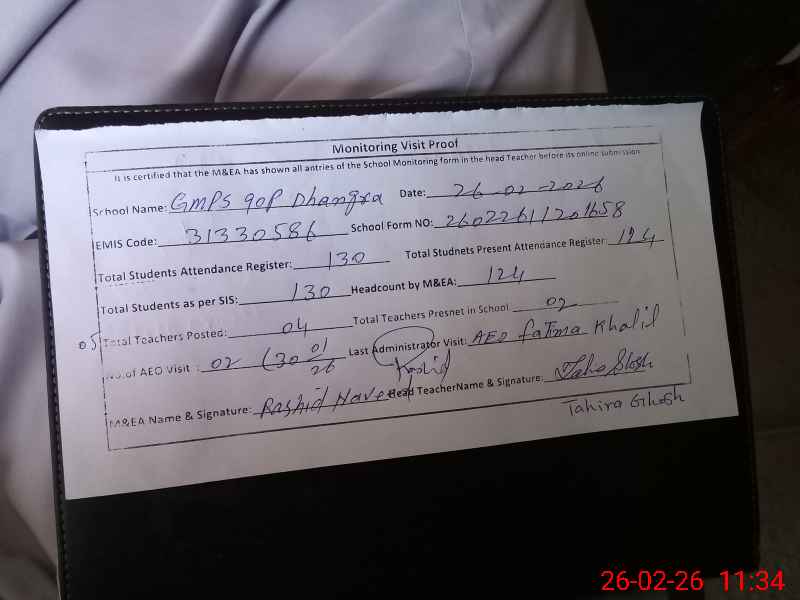 Monitoring Visit Proof
It is certified that the M&EA has shown all antries of the School Monitoring form in the head Teacher before its online submission
School Name: GMPS 90P Dhangra Date: 26-02-2026
EMIS Code: 31330586 School Form NO: 26022611201658
Total Students Attendance Register: 130 Total Studnets Present Attendance Register: 124
Total Students as per SIS: 130 Headcount by M&EA: 124
05 Total Teachers Posted: 04 Total Teachers Presnet in School 02
No.of AEO Visit : 02 (30 01/26 Last Administrator Visit: AEO fatima Khalil
Rashid
M&EA Name & Signature: Rashid Naveed Head TeacherName & Signature:
Tahira Ghosh
26-02-26 11:34